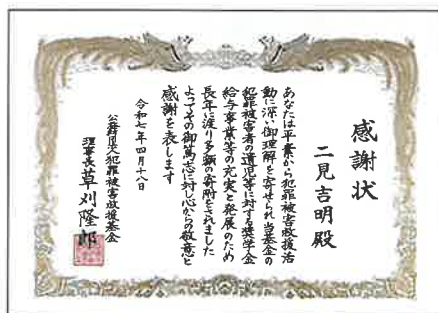 感謝状
二見吉明殿
あなたは平素から犯罪被害救援活
動に深い御理解を寄せられ当基金の
犯罪被害者の遺児等に対する奨学金
給与事業等の充実と発展のため
長年に渡り多額の寄附をされました
よってその御篤志に対し心からの敬意と
感謝を表します
令和七年四月十八日
公益財団法人犯罪被害救援基金
理事長草刈隆郎